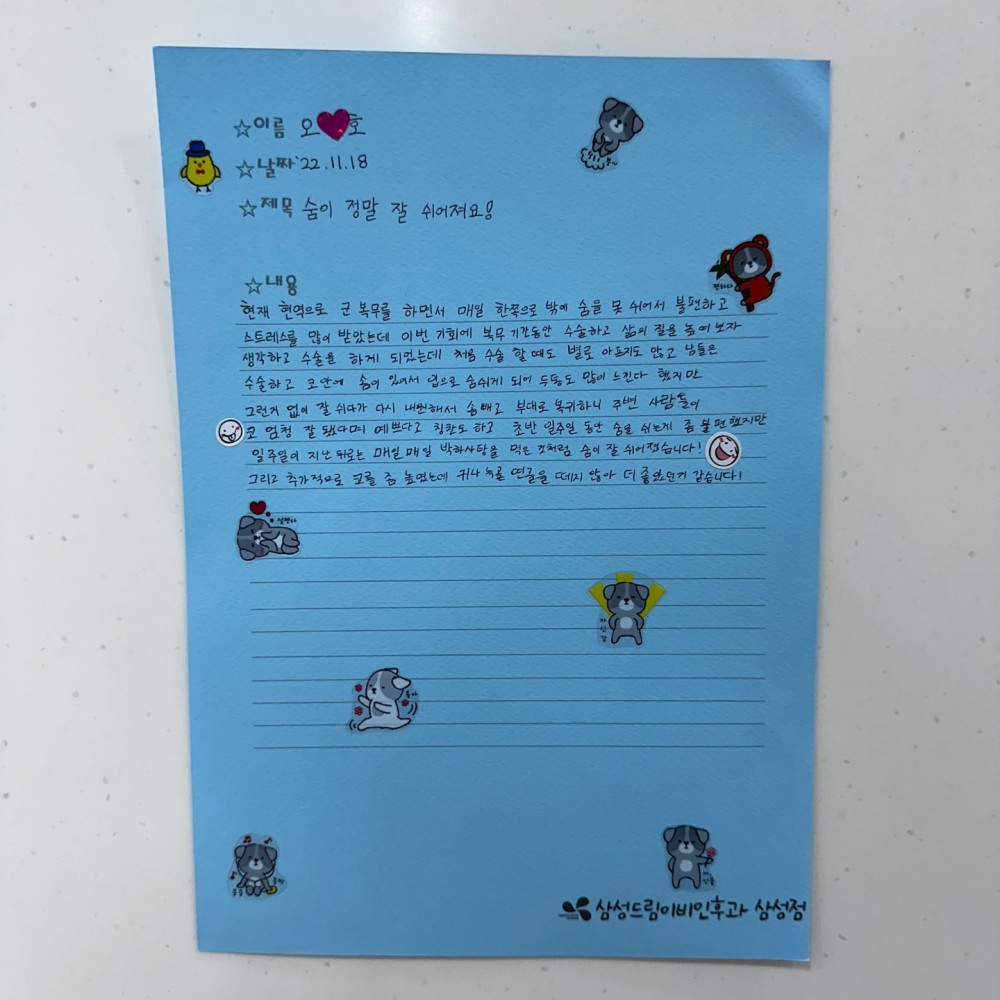 ☆이름 오 호
☆날짜 '22.11.18
☆제목 숨이 정말 잘 쉬어져요!
☆내용
현재 현역으로 군 복무를 하면서 매일 한쪽으로 밖에 숨을 못 쉬어서 불편하고
스트레스를 많이 받았는데 이번 기회에 복무 기간동안 수술하고 삶의 질을 높여 보자
생각하고 수술을 하게 되었는데 처음 수술 할 때도 별로 아프지도 않고 남들은
수술하고 코안에 솜이 있어서 입으로 숨쉬게 되어 두통도 많이 느낀다 했지만
그런거 없이 잘 쉬다가 다시 내원해서 솜 빼고 부대로 복귀하니 주변 사람들이
코 엄청 잘 됐다며 예쁘다고 칭찬도 하고 초반 일주일 동안 숨을 쉬는게 좀 불편했지만
일주일이 지난 뒤로는 매일 매일 박하사탕을 먹은 것처럼 숨이 잘 쉬어졌습니다!
그리고 추가적으로 코를 좀 높였는데 귀나 늑골 연골을 떼지 않아 더 좋았던거 같습니다!
삼성드림이비인후과 삼성점